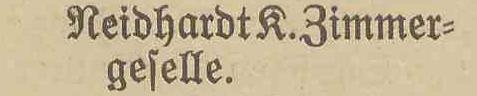 Neidhardt K. Zimmer⸗
geſelle.